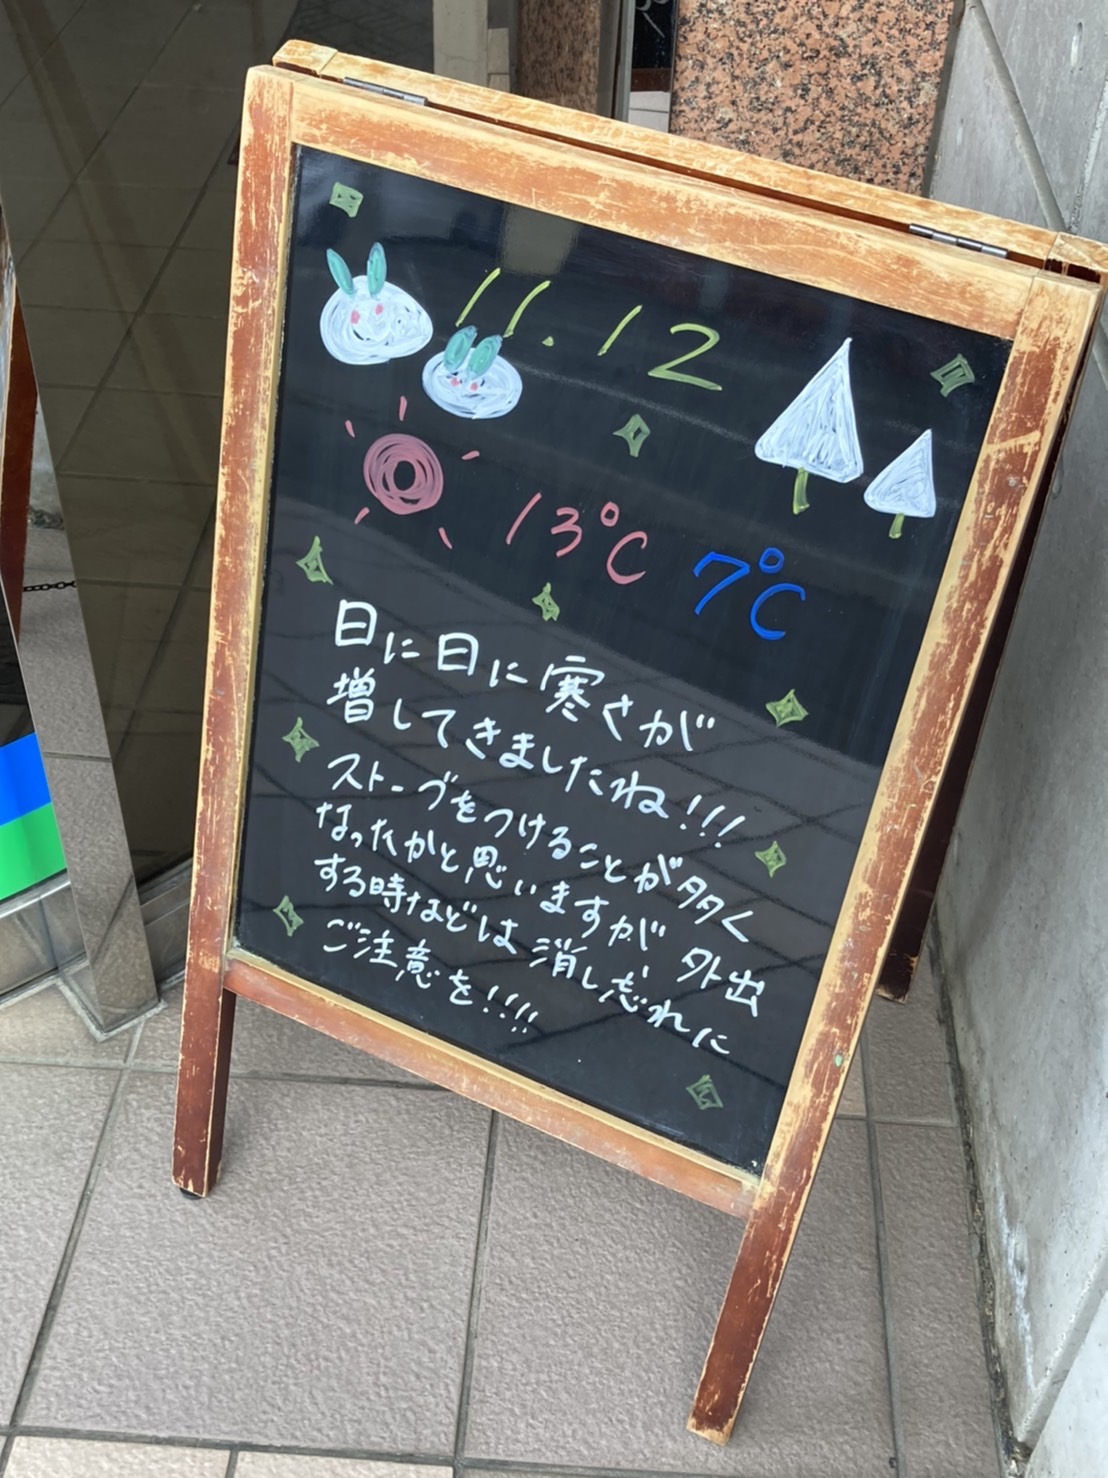 11.12
13℃ 7℃
日に日に寒さが
増してきましたね!!!
ストーブをつけることが多く
なったかと思いますが 外出
する時などは 消し忘れに
ご注意を!!!!